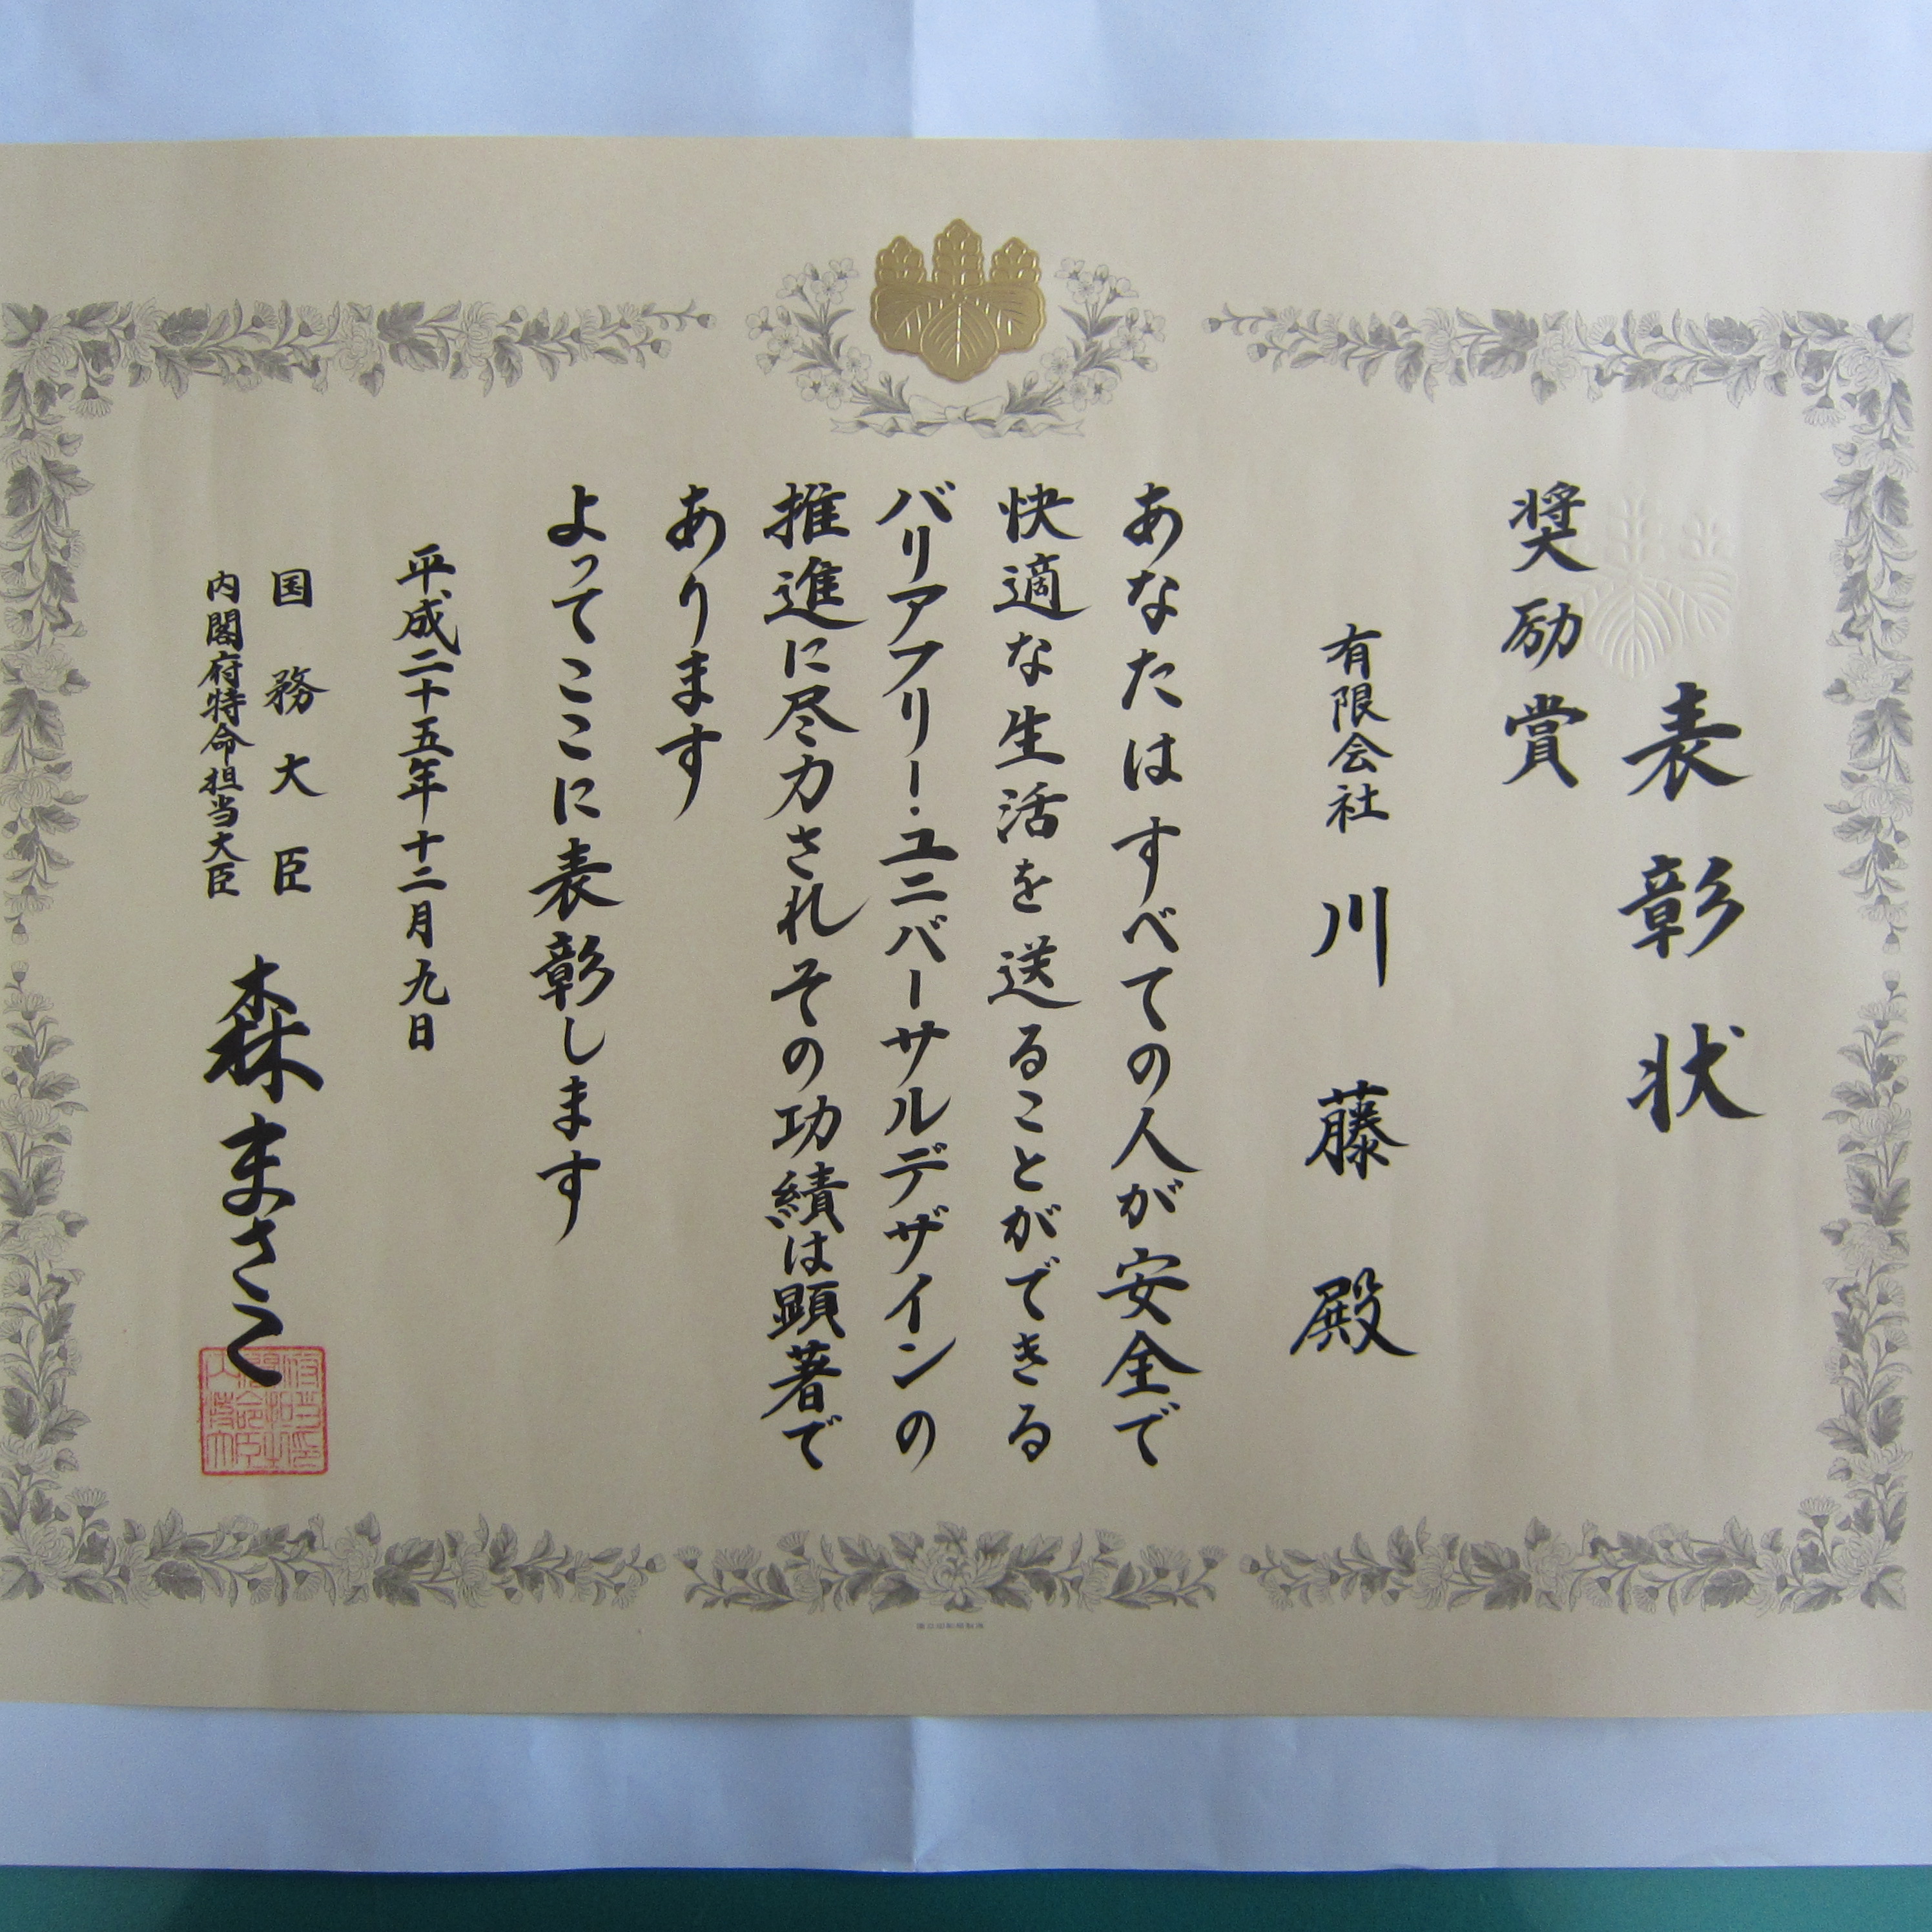 表彰状
奨励賞
有限会社 川藤殿
あなたはすべての人が安全で
快適な生活を送ることができる
バリアフリー・ユニバーサルデザインの
推進に尽力されその功績は顕著で
あります
よってここに表彰します
平成二十五年十二月九日
国務大臣
内閣府特命担当大臣
森まさこ